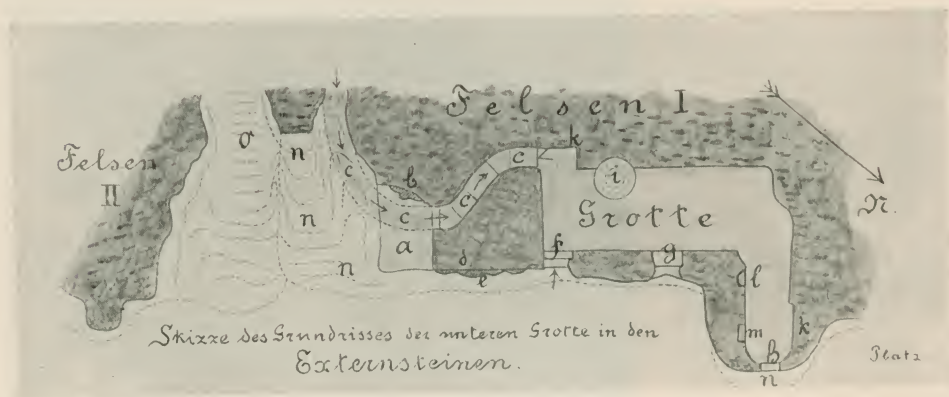 Felsen I
Felsen
II
N.
o
n
c
b
c
c
c
k
i
Grotte
n
n
a
d
e
f
g
l
m
k
h
n
Platz
Skizze des Grundrisses der unteren Grotte in den
Externsteinen.